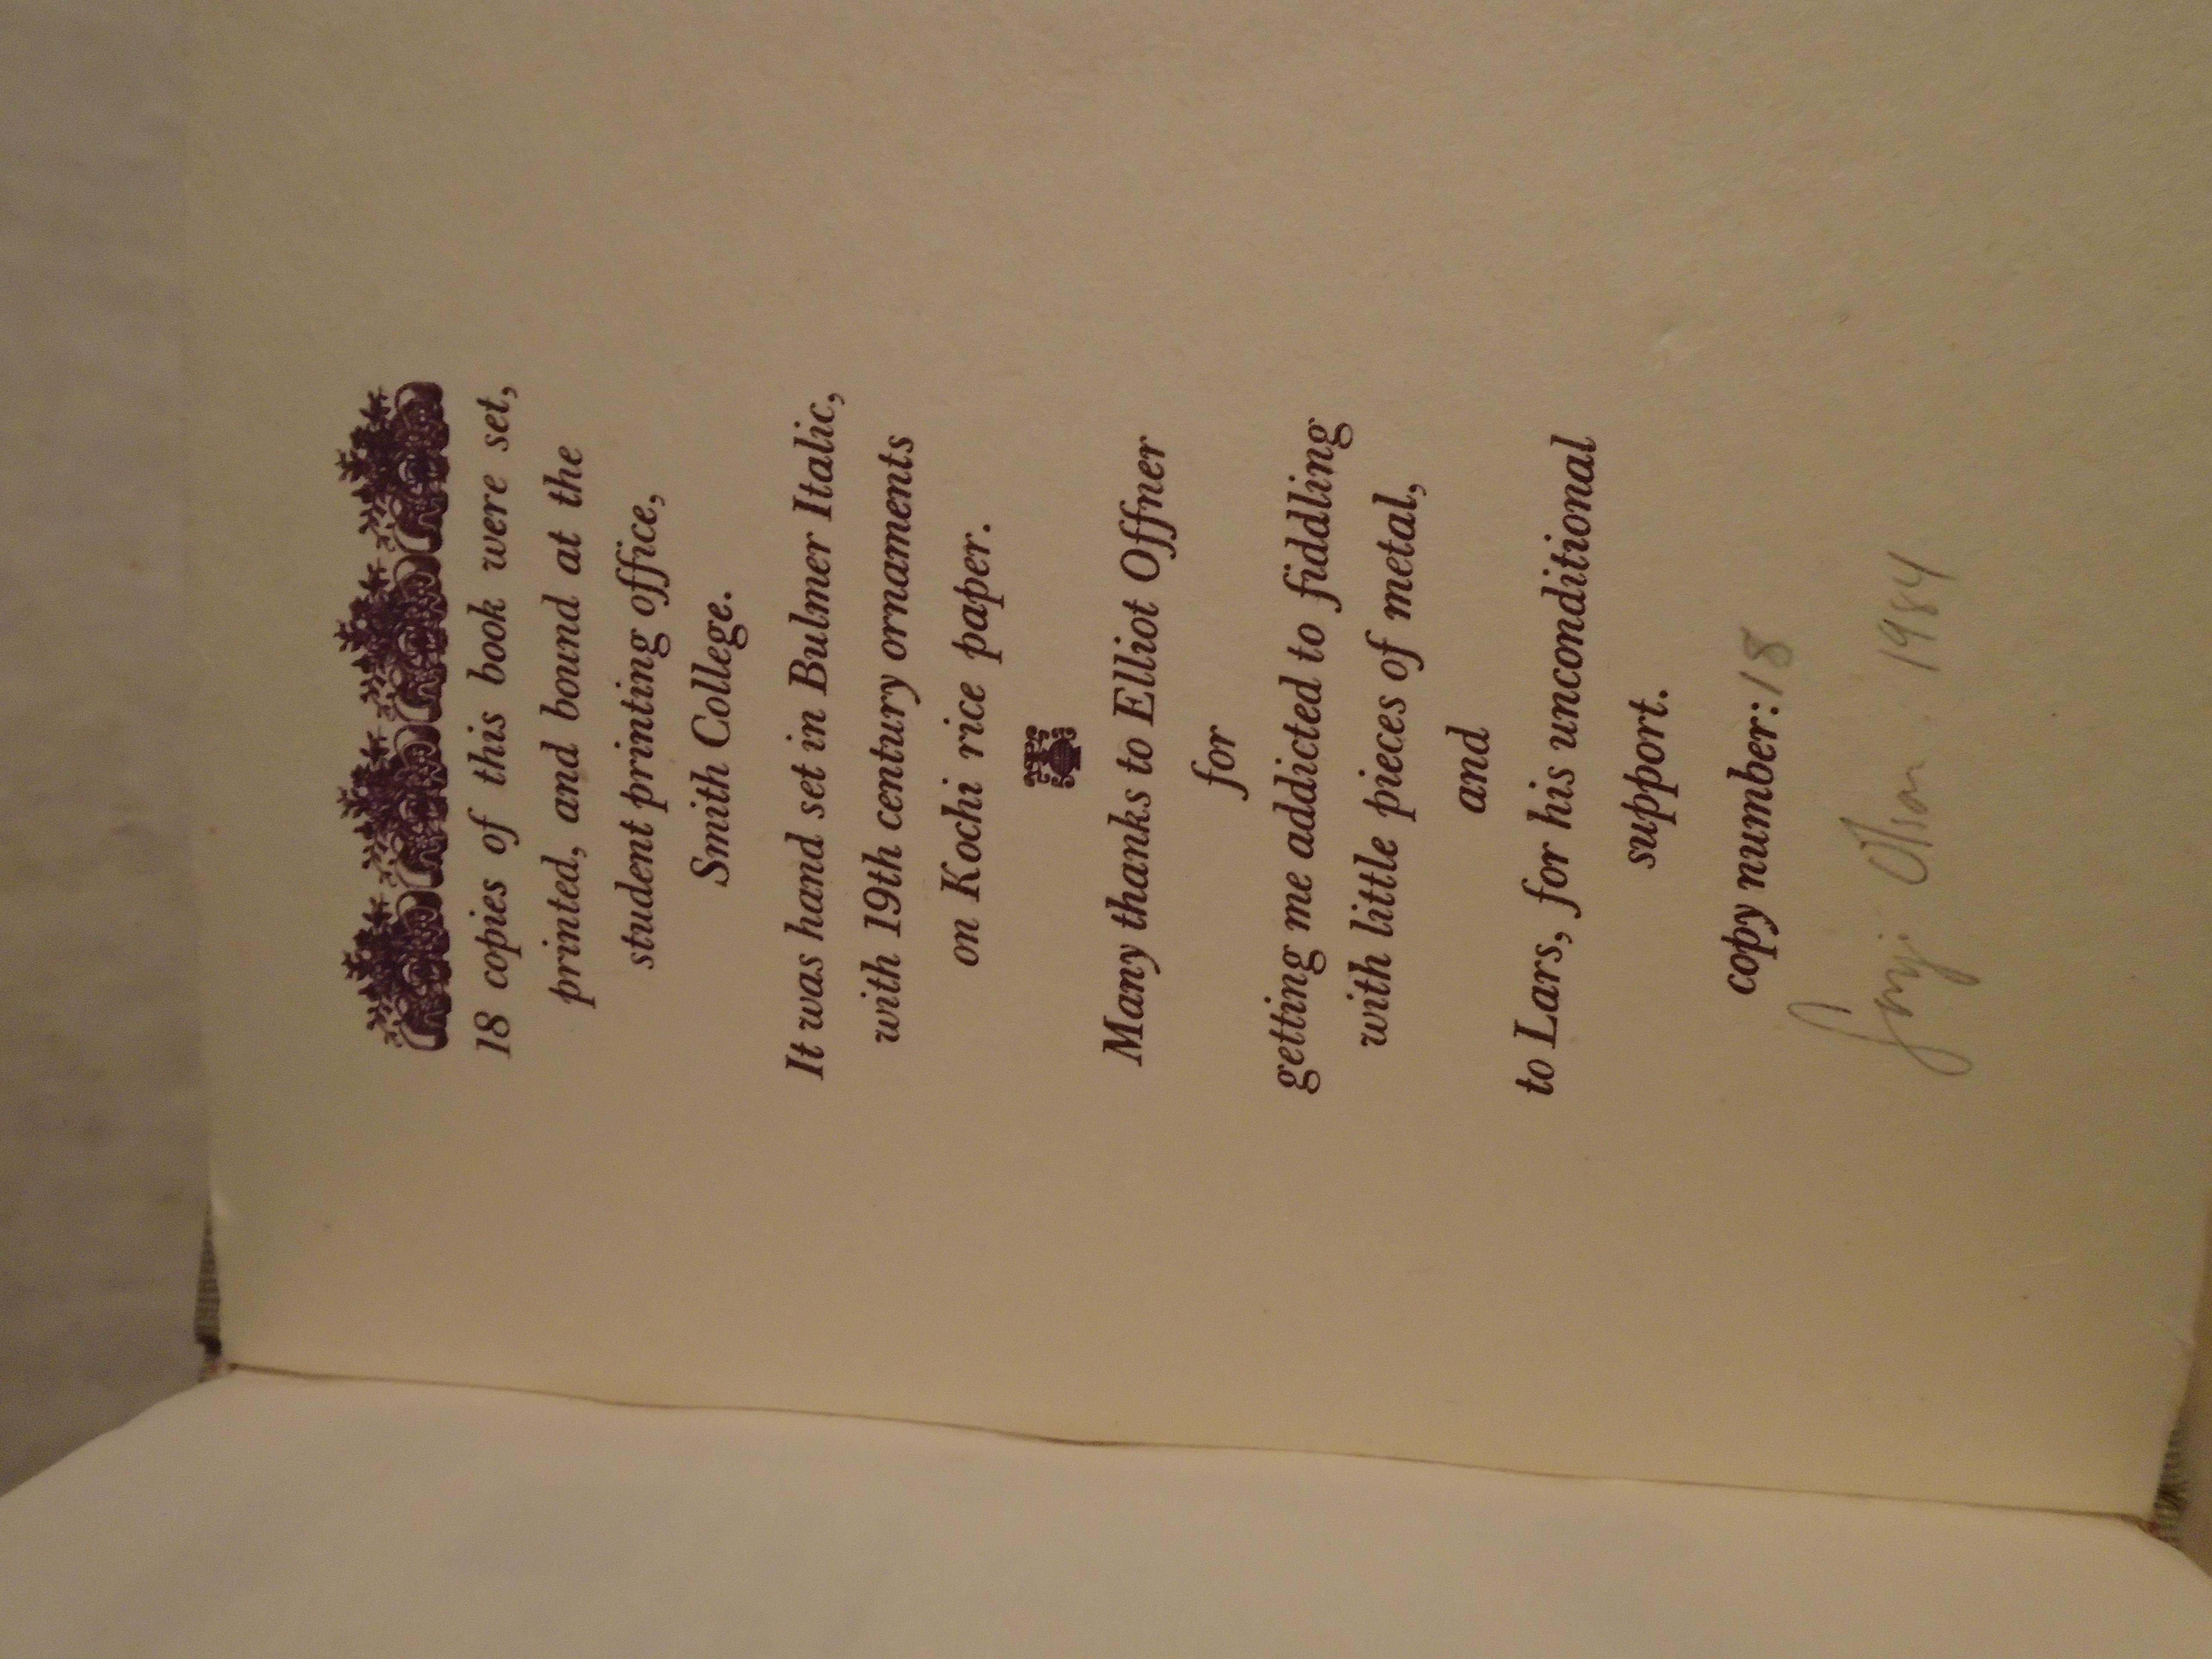 18 copies of this book were set,
printed, and bound at the
student printing office,
Smith College.
It was hand set in Bulmer Italic,
with 19th century ornaments
on Kochi rice paper.
Many thanks to Elliot Offner
for
getting me addicted to fiddling
with little pieces of metal,
and
to Lars, for his unconditional
support.
copy number: 18
1984